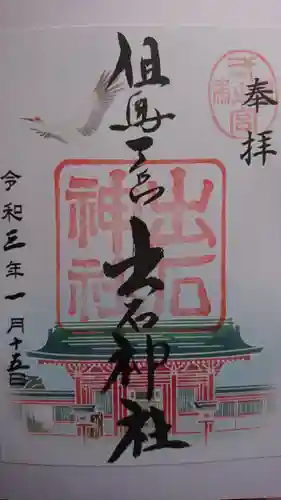 奉拝
但馬一宮
出石神社
出石
神社
令和三年一月十五日